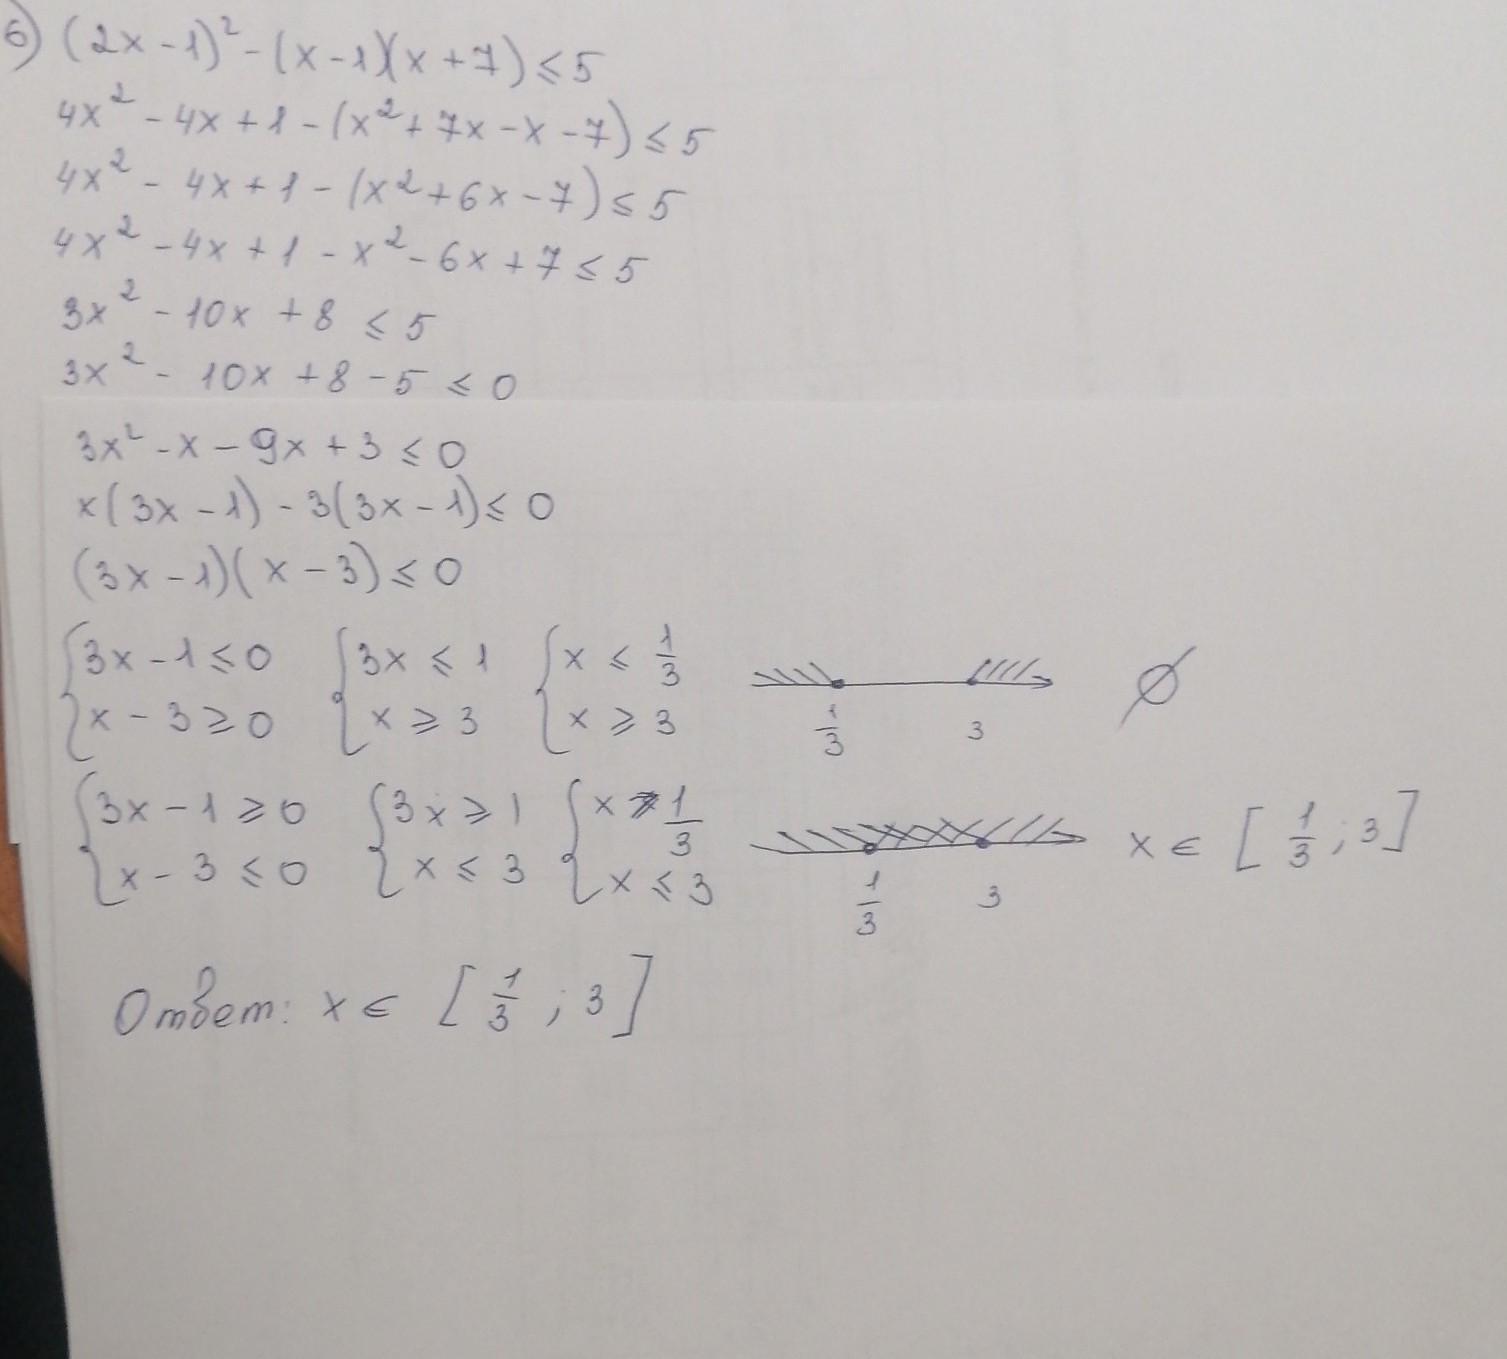 б) (2x - 1)² - (x - 1)(x + 7) ≤ 5
4x² - 4x + 1 - (x² + 7x - x - 7) ≤ 5
4x² - 4x + 1 - (x² + 6x - 7) ≤ 5
4x² - 4x + 1 - x² - 6x + 7 ≤ 5
3x² - 10x + 8 ≤ 5
3x² - 10x + 8 - 5 ≤ 0
3x² - x - 9x + 3 ≤ 0
x(3x - 1) - 3(3x - 1) ≤ 0
(3x - 1)(x - 3) ≤ 0
{3x - 1 ≤ 0 {3x ≤ 1 {x ≤ 1/3 ∅
{x - 3 ≥ 0 {x ≥ 3 {x ≥ 3 1/3 3
{3x - 1 ≥ 0 {3x ≥ 1 {x ≥ 1/3 x ∈ [1/3 ; 3]
{x - 3 ≤ 0 {x ≤ 3 {x ≤ 3 1/3 3
Ответ: x ∈ [1/3 ; 3]